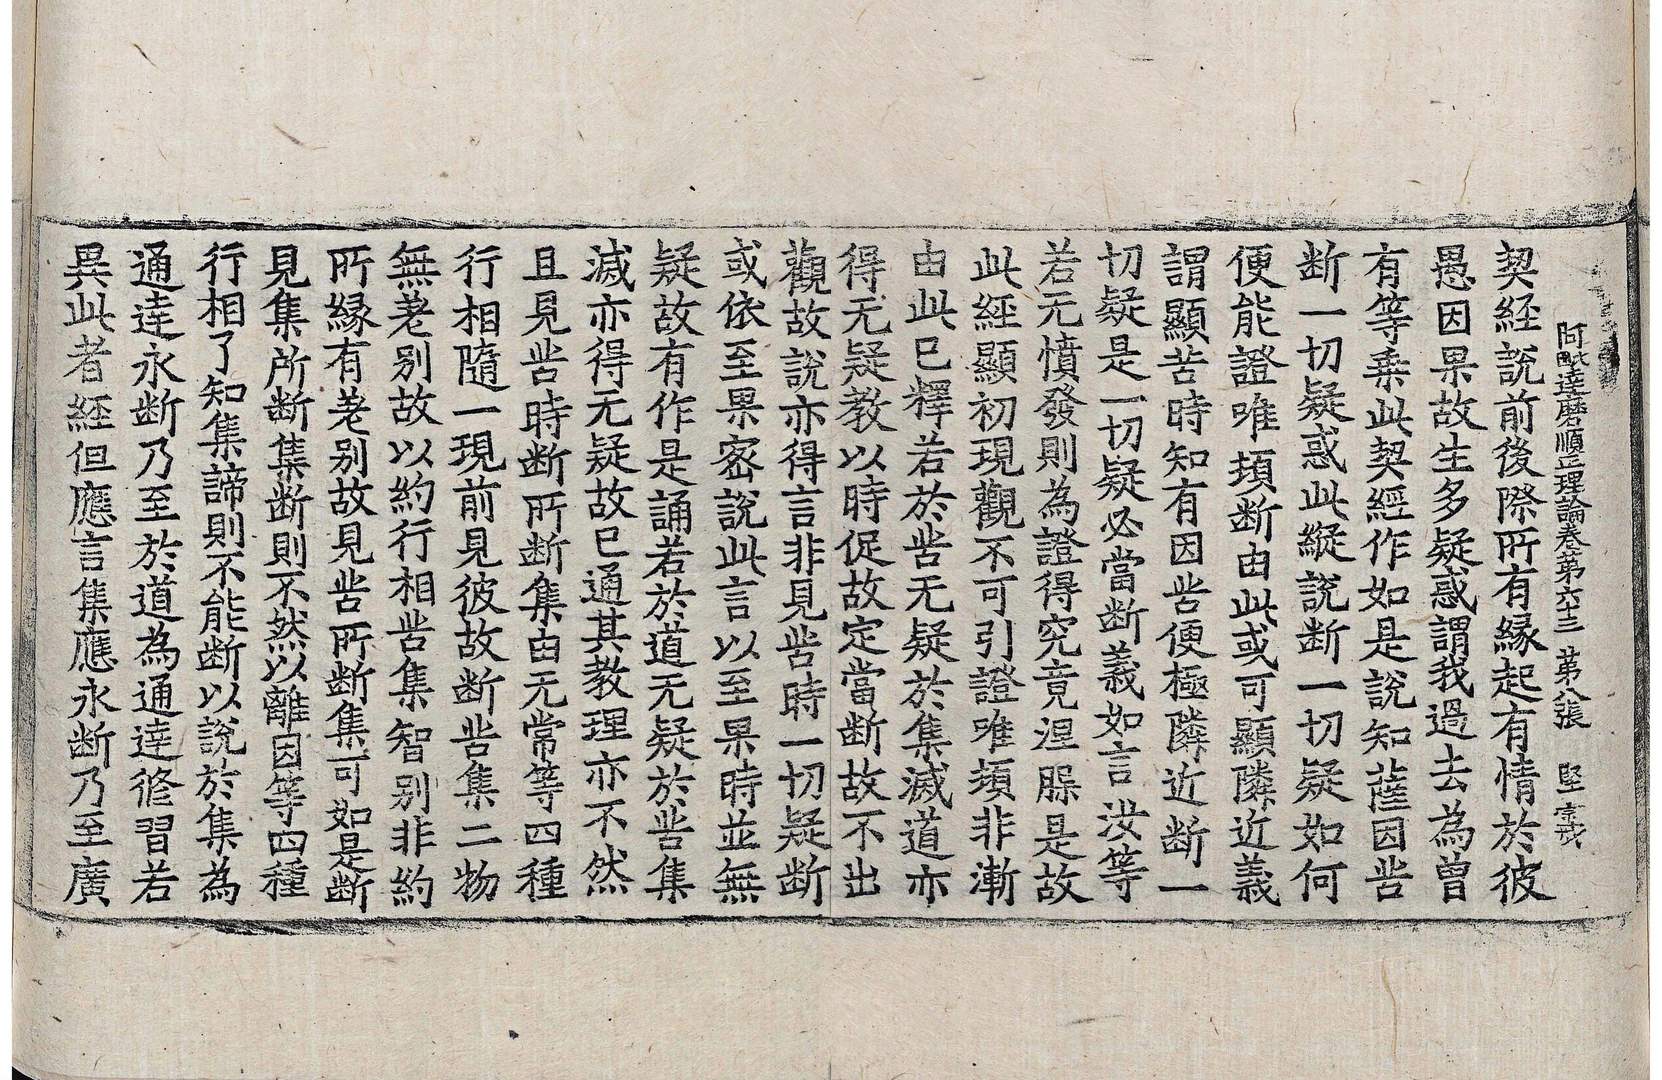 阿毗達磨順正理論卷第六十三　第八張　堅　宗戒
契経說前後際所有縁起有情於彼
愚因果故生多疑惑謂我過去為曾
有等乗此契經作如是說知薩因苦
断一切疑惑此縱說断一切疑如何
便能證唯頓断由此或可顯隣近義
謂顯苦時知有因苦便極隣近断一
切疑是一切疑必當断義如言汝等
若无憤發則為證得究竟涅槃是故
此經顯初現觀不可引證唯頓非漸
由此已釋若於苦无疑於集滅道亦
得无疑教以時促故定當断故不出
觀故說亦得言非見苦時一切疑断
或依至果密說此言以至果時並無
疑故有作是誦若於道无疑於苦集
滅亦得无疑故已通其教理亦不然
且見苦時断所断集由无常等四種
行相隨一現前見彼故断苦集二物
無差别故以約行相苦集智别非約
所縁有差别故見苦所断集可如是断
見集所断集断則不然以離因等四種
行相了知集諦則不能断以說於集為
通達永断乃至於道為通達修習若
異此者経但應言集應永断乃至廣